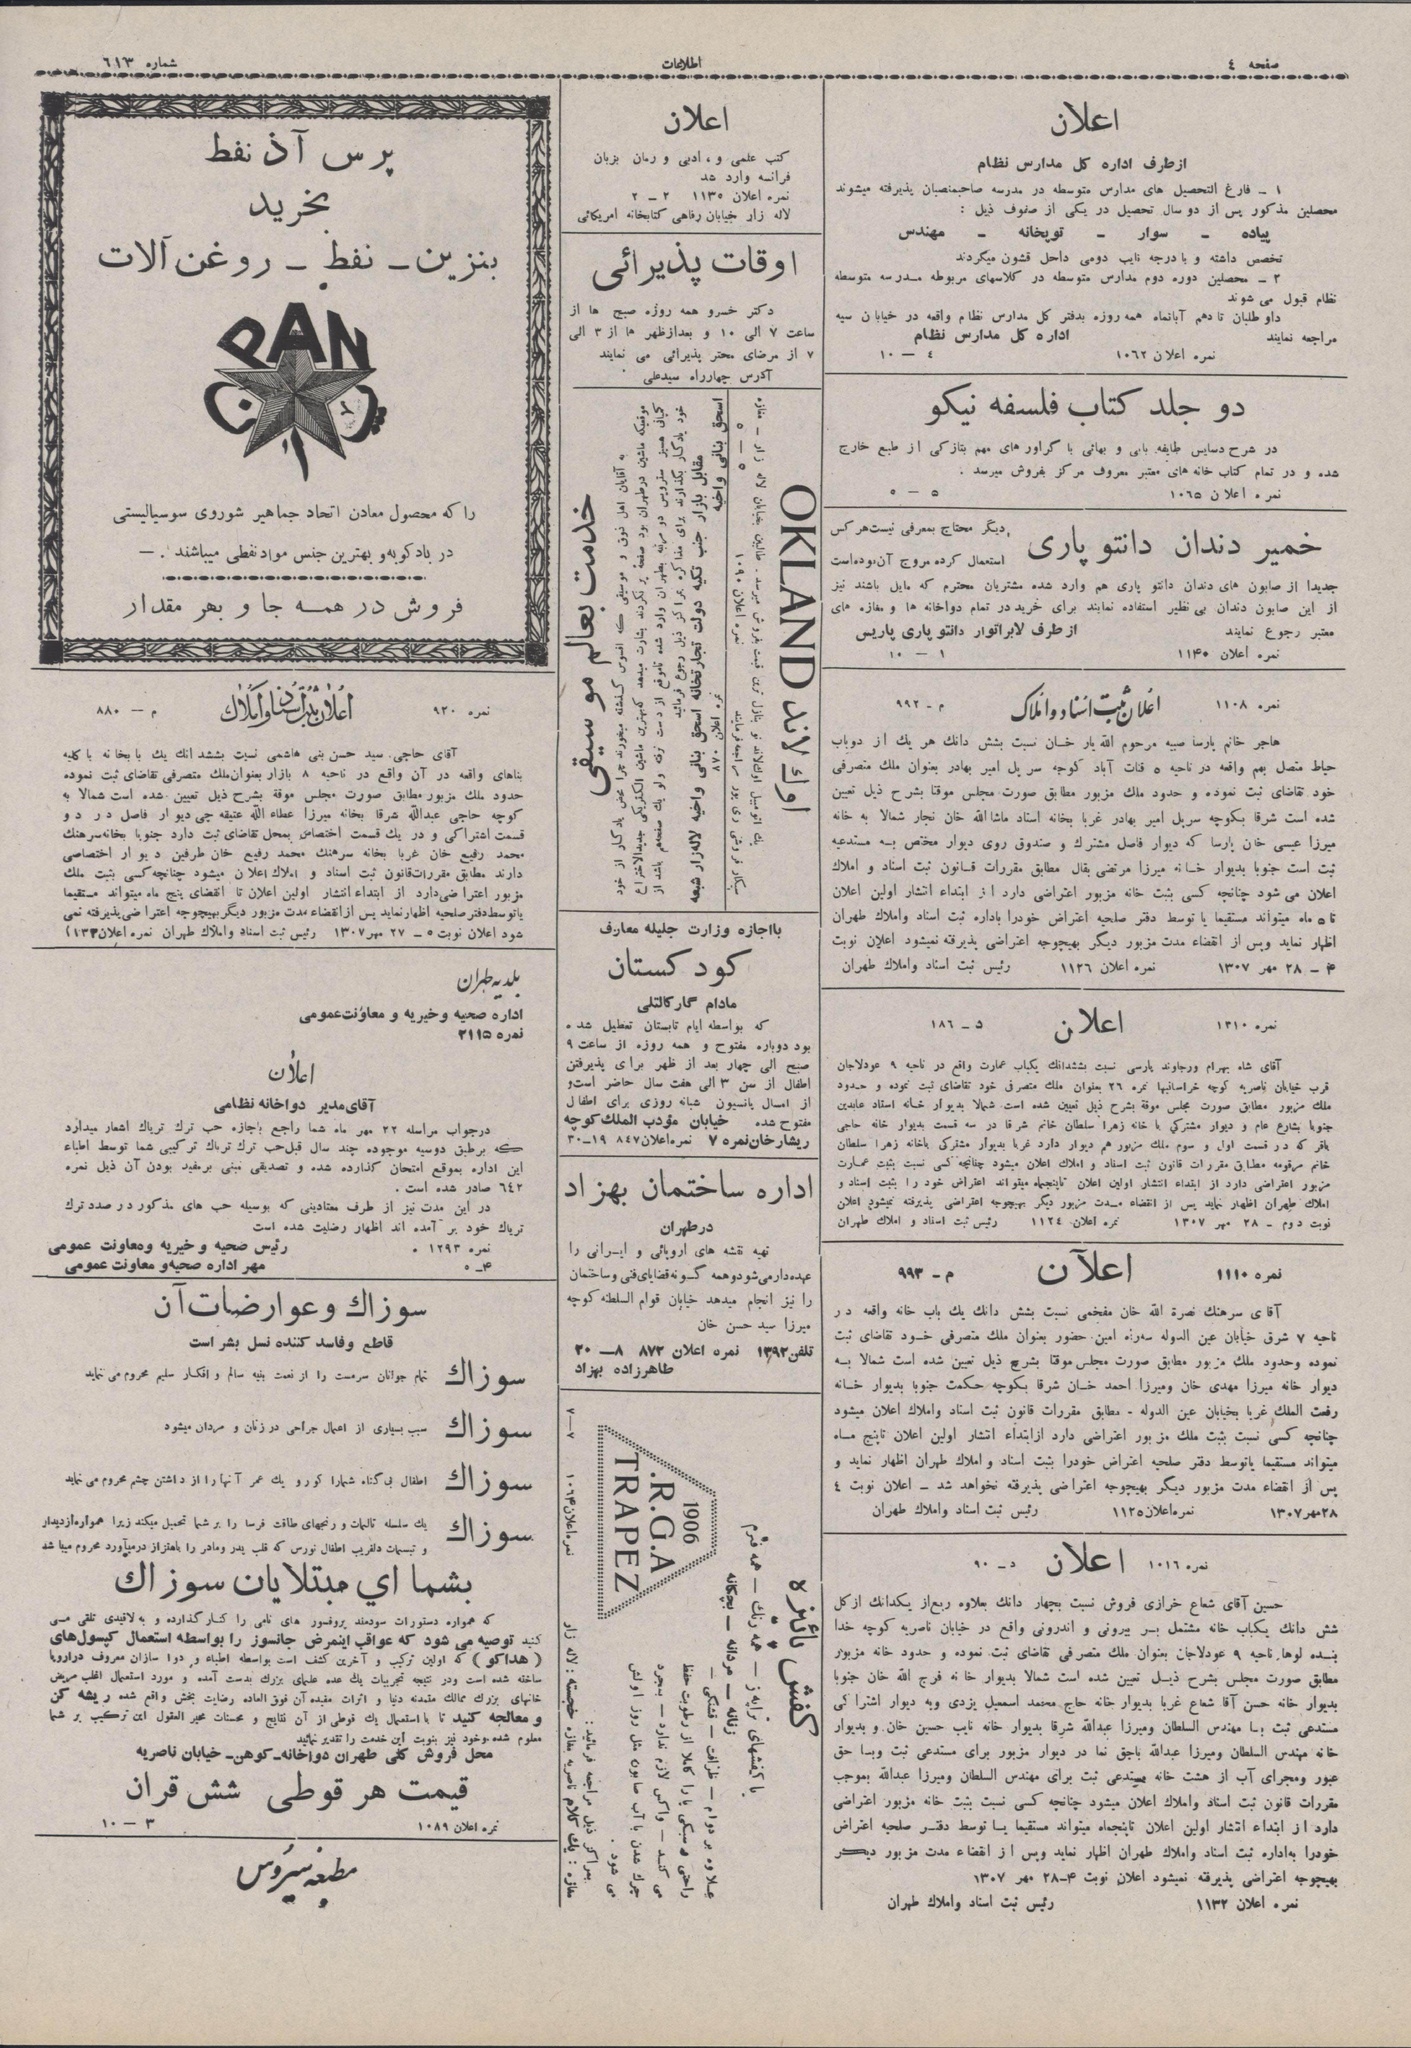 صفحه ٤
اطلاعات
شماره ٦١٣
اعلان
ازطرف اداره کل مدارس نظام
١ ـ فارغ التحصیل های مدارس متوسطه در مدرسه صاحبمنصبان پذیرفته میشوند
محصلین مذکور پس از دو سال تحصیل در یکی از صفوف ذیل :
پیاده ـ سوار ـ توپخانه ـ مهندس
تخصص داشته و با درجه نایب دومی داخل قشون میگردند
٢ ـ محصلین دوره دوم مدارس متوسطه در کلاسهای مربوطه مدرسه متوسطه
نظام قبول می شوند
داوطلبان تا دهم آبانماه همه روزه بدفتر کل مدارس نظام واقعه در خیابان سپه
مراجعه نمایند اداره کل مدارس نظام
نمره اعلان ١٠٦٢ ٤ ـ ١٠
دو جلد کتاب فلسفه نیکو
در شرح دسایس طایفه بابی و بهائی با گراور های مهم بتازگی از طبع خارج
شده و در تمام کتاب خانه های معتبر معروف مرکز بفروش میرسد .
نمره اعلان ١٠٦٥ ٥ ـ ٥
خمیر دندان دانتو پاری
دیگر محتاج بمعرفی نیست هرکس
استعمال کرده مروج آن بوده است
جدیدا از صابون های دندان دانتو پاری هم وارد شده مشتریان محترم که مایل باشند نیز
از این صابون دندان بی نظیر استفاده نمایند برای خرید در تمام دواخانه ها و مغازه های
معتبر رجوع نمایند از طرف لابراتوار دانتو پاری پاریس
نمره اعلان ١١٤٠ ١ ـ ١٠
نمره ١١٠٨ اعلان ثبت اسناد و املاک م ـ ٩٩٢
هاجر خانم پارسا صبیه مرحوم الله یار خان نسبت بشش دانك هر یك از دوباب
حیاط متصل بهم واقعه در ناحیه ٥ قنات آباد کوچه سرپل امیر بهادر بعنوان ملك متصرفی
خود تقاضای ثبت نموده و حدود ملك مزبور مطابق صورت مجلس موقتا بشرح ذیل تعیین
شده است شرقا بکوچه سرپل امیر بهادر غربا بخانه استاد ماشاالله خان نجار شمالا به خانه
میرزا عیسی خان پارسا که دیوار فاصل مشترك و صندوق روی دیوار مختص به مستدعیه
ثبت است جنوبا بدیوار خانه میرزا مرتضی بقال مطابق مقررات قانون ثبت اسناد و املاك
اعلان می شود چنانچه کسی بثبت خانه مزبور اعتراضی دارد از ابتداء انتشار اولین اعلان
تا ٥ ماه میتواند مستقیما یا توسط دفتر صلحیه اعتراض خودرا باداره ثبت اسناد واملاك طهران
اظهار نماید وپس از انقضاء مدت مزبور دیگر بهیچوجه اعتراضی پذیرفته نمیشود اعلان نوبت
۴ ـ ٢٨ مهر ١٣٠٧ نمره اعلان ١١٢٦ رئیس ثبت اسناد واملاك طهران
نمره ١٣١٠ اعلان د ـ ١٨٦
آقای شاه بهرام ورجاوند پارسی نسبت بششدانك یکباب عمارت واقع در ناحیه ٩ عودلاجان
قرب خیابان ناصریه کوچه خراسانیها نمره ٢٦ بعنوان ملك متصرفی خود تقاضای ثبت نموده و حدود
ملك مزبور مطابق صورت مجلس موقة بشرح ذیل تعیین شده است. شمالا بدیوار خانه استاد عابدین
جنوبا بشارع عام و دیوار مشترکی با خانه زهرا سلطان خانم شرقا در سه قسمت بدیوار خانه حاجی
باقر که در قسمت اول و سوم ملك مزبور هم دیوار دارد غربا بدیوار مشترکی باخانه زهرا سلطان
خانم مرقومه مطابق مقررات قانون ثبت اسناد و املاك اعلان میشود چنانچه کسی نسبت بثبت عمارت
مزبور اعتراضی دارد از ابتداء انتشار اولین اعلان تاپنجماه میتواند اعتراض خود را بثبت اسناد و
املاك طهران اظهار نماید پس از انقضاء مدت مزبور دیگر بهیچوجه اعتراضی پذیرفته نمیشود اعلان
نوبت دوم ـ ٢٨ مهر ١٣٠٧ نمره اعلان ١١٢٤ رئیس ثبت اسناد و املاك طهران
نمره ١١١٠ اعلان م ـ ٩٩٣
آقای سرهنك نصرة الله خان مفخمی نسبت بشش دانك یك باب خانه واقعه در
ناحیه ٧ شرق خیابان عین الدوله سه‌راه امین حضور بعنوان ملك متصرفی خود تقاضای ثبت
نموده وحدود ملك مزبور مطابق صورت مجلس موقتا بشرح ذیل تعیین شده است شمالا به
دیوار خانه میرزا مهدی خان ومیرزا احمد خان شرقا بکوچه حکمت جنوبا بدیوار خانه
رفعت الملك غربا بخیابان عین الدوله ـ مطابق مقررات قانون ثبت اسناد واملاك اعلان میشود
چنانچه کسی نسبت بثبت ملك مزبور اعتراضی دارد ازابتداء انتشار اولین اعلان تاپنج ماه
میتواند مستقیما یاتوسط دفتر صلحیه اعتراض خودرا بثبت اسناد واملاك طهران اظهار نماید و
پس از انقضاء مدت مزبور دیگر بهیچوجه اعتراضی پذیرفته نخواهد شد ـ اعلان نوبت ٤
٢٨مهر١٣٠٧ نمره‌اعلان١١٢٥ رئیس ثبت اسناد واملاك طهران
نمره ١٠١٦ اعلان د ـ ٩٠
حسین آقای شعاع خرازی فروش نسبت بچهار دانك بعلاوه ربع‌از یکدانك ازکل
شش دانك یکباب خانه مشتمل بر بیرونی و اندرونی واقع در خیابان ناصریه کوچه خدا
بنده لوها ناحیه ٩ عودلاجان بعنوان ملك متصرفی تقاضای ثبت نموده و حدود خانه مزبور
مطابق صورت مجلس بشرح ذیل تعیین شده است شمالا بدیوار خانه فرج الله خان جنوبا
بدیوار خانه حسن آقا شعاع غربا بدیوار خانه حاج محمد اسمعیل یزدی وبه دیوار اشتراکی
مستدعی ثبت با مهندس السلطان ومیرزا عبدالله شرقا بدیوار خانه نایب حسین خان و بدیوار
خانه مهندس السلطان ومیرزا عبدالله باجق نما در دیوار مزبور برای مستدعی ثبت وبا حق
عبور ومجرای آب از هشت خانه مستدعی ثبت برای مهندس السلطان ومیرزا عبدالله بموجب
مقررات قانون ثبت اسناد واملاك اعلان میشود چنانچه کسی نسبت بثبت خانه مزبور اعتراضی
دارد از ابتداء انتشار اولین اعلان تاپنجماه میتواند مستقیما یا توسط دفتر صلحیه اعتراض
خودرا به‌اداره ثبت اسناد واملاك طهران اظهار نماید وپس از انقضاء مدت مزبور دیگر
بهیچوجه اعتراضی پذیرفته نمیشود اعلان نوبت ۴ـ٢٨ مهر ١٣٠٧
نمره اعلان ١١٣٢ رئیس ثبت اسناد واملاك طهران
اعلان
کتب علمی و، ادبی و رمان بزبان
فرانسه وارد شد
نمره اعلان ١١٣٥ ٢ ـ ٢
لاله زار خیابان رفاهی کتابخانه امریکائی
اوقات پذیرائی
دکتر خسرو همه روزه صبح ها از
ساعت ٧ الی ١٠ و بعدازظهر ها از ٣ الی
٧ از مرضای محترم پذیرائی می نمایند
آدرس چهارراه سیدعلی
OKLAND اوك لاند
یك اتومبیل اوك‌لاند نو بنازل ترین قیمت بفروش میرسد. طالبین بخیابان لاله زار ـ مغازه
سیگار فروشی ری پور مراجعه فرمایند نمره اعلان ١٠٩٠ ٥ ـ ٥
خدمت بعالم موسیقی
به آقایان اهل ذوق و موسیقی که افسوس گذشته میخورند چرا محض یادگار از خود
موقعیکه ماشین درطهران بود صفحه پر نکردند بشارت میدهد که بهترین ماشین الکتریکی جدیدالاختراع
کمپانی هیز مترویس دو مرتبه بطهران وارد شده تاموقع از دست نرفته ولو یك صفحه‌هم باشد از
خود یادگار بگذارند برای مذاکره بمراکز ذیل رجوع فرمائید
مقابل بازار جنب تکیه دولت تجارتخانه اسحق بنانی واخیه لاله‌زار شعبه
اسحق بنانی واخیه نمره اعلان ٨٧٠
بااجازه وزارت جلیله معارف
کودکستان
مادام گارکالتلی
که بواسطه ایام تابستان تعطیل شده
بود دوباره مفتوح و همه روزه از ساعت ٩
صبح الی چهار بعد از ظهر برای پذیرفتن
اطفال از سن ٣ الی هفت سال حاضر است و
از امسال پانسیون شبانه روزی برای اطفال
مفتوح شده. خیابان مؤدب الملك کوچه
ریشارخان‌نمره ٧ نمره‌اعلان٨٤٧ ١٩ـ٣٠
اداره ساختمان بهزاد
درطهران
تهیه نقشه های اروپائی و ایرانی را
عهده‌دار میشود وهمه گونه‌قضایای‌فنی وساختمان
را نیز انجام میدهد خیابان قوام السلطنه کوچه
میرزا سید حسن خان
تلفن١٣٩٢ نمره اعلان ٨٧٢ ٨ـ٢٠
طاهرزاده بهزاد
کفش پائیزه
با کفشهای تراپه ز ـ همه رنك ـ همه فرم
زنانه ـ مردانه ـ بچگانه
علاوه بر دوام ـ ظرافت ـ قشنگی ـ
راحتی وسبکی پا را کاملا از رطوبت حفظ
می کند ـ واکس لازم ندارد ـ بمجرد
چرك شدن با آب صابون مثل روز اولش
می شود .
1906
R.G.A.
TRAPEZ
بمراکز ذیل مراجعه فرمائید :
مغازه : یك کلام ناصریه مغازه خجسته : لاله زار
نمره‌اعلان١٠٦۴ ٧ـ٧
پرس آذ نفط
بخرید
بنزین ـ نفط ـ روغن آلات
PAN
را که محصول معادن اتحاد جماهیر شوروی سوسیالیستی
در بادکوبه و بهترین جنس مواد نفطی میباشند . ـ
فروش در همه جا و بهر مقدار
نمره ٩٢٠ اعلان ثبت اسناد و املاک م ـ ٨٨٠
آقای حاجی سید حسن بنی هاشمی نسبت بششدانك یك بابخانه باکلیه
بناهای واقعه در آن واقع در ناحیه ٨ بازار بعنوان ملك متصرفی تقاضای ثبت نموده
حدود ملك مزبور مطابق صورت مجلس موقة بشرح ذیل تعیین شده است شمالا به
کوچه حاجی عبدالله شرقا بخانه میرزا عطاء الله عتیقه چی دیوار فاصل در دو
قسمت اشتراکی و در یك قسمت اختصاص بمحل تقاضای ثبت دارد جنوبا بخانه‌سرهنك
محمد رفیع خان غربا بخانه سرهنك محمد رفیع خان طرفین دیوار اختصاصی
دارند مطابق مقررات‌قانون ثبت اسناد و املاك‌اعلان میشود چنانچه‌کسی بثبت ملك
مزبور اعتراضی‌دارد از ابتداء انتشار اولین اعلان تا انقضای پنج ماه میتواند مستقیما
یاتوسط‌دفتر صلحیه اظهار نماید پس ازانقضاء مدت مزبور دیگر بهیچوجه اعتراضی‌پذیرفته نمی
شود اعلان نوبت ٥ ـ ٢٧ مهر ١٣٠٧ رئیس ثبت اسناد واملاك طهران
بلدیه طهران
اداره صحیه و خیریه و معاونت عمومی
نمره ٢١١٥
اعلان
آقای مدیر دواخانه نظامی
درجواب مراسله ٢٢ مهر ماه شما راجع باجازه حب ترك تریاك اشعار میدارد
که برطبق دوسیه موجوده چند سال قبل‌حب ترك تریاك ترکیبی شما توسط اطباء
این اداره بموقع امتحان گذارده شده و تصدیقی مبنی برمفید بودن آن ذیل نمره
٦٤٢ صادر شده است .
در این مدت نیز از طرف معتادینی که بوسیله حب های مذکور در صدد ترك
تریاك خود بر آمده اند اظهار رضایت شده است
نمره ١٢٩٣ رئیس صحیه و خیریه ومعاونت عمومی
۴ـ٥ مهر اداره صحیه و معاونت عمومی
سوزاك وعوارضات آن
قاطع وفاسد کننده نسل بشر است
سوزاك تمام جوانان سرمست را از نعمت بنیه سالم و افکار سلیم محروم می نماید
سوزاك سبب بسیاری از اعمال جراحی در زنان و مردان میشود
سوزاك اطفال بی‌گناه شمارا کور و یك عمر آنها را از داشتن چشم محروم می نماید
سوزاك یك سلسله تالمات و رنجهای طاقت فرسا را بر شما تحمیل میکند زیرا همواره‌ازدیدار
و تبسمات دلفریب اطفال نورس که قلب پدر ومادر را باهتزاز درمیآورد محروم میباشد
بشما ای مبتلایان سوزاك
که همواره دستورات سودمند پروفسور های نامی را کنارگذارده و به لاقیدی تلقی می
کنید توصیه می شود که عواقب اینمرض جانسوز را بواسطه استعمال کپسول‌های
( هداکو ) که اولین ترکیب و آخرین کشف است بواسطه اطباء و دوا سازان معروف دراروپا
ساخته شده است ودر نتیجه تجربیات یك عده علمای بزرك بدست آمده و مورد استعمال اغلب مریض
خانهای بزرك ممالك متمدنه دنیا و اثرات مفیده آن فوق العاده رضایت بخش واقع شده ریشه کن
و معالجه کنید تا با استعمال یك قوطی از آن نتایج و محسنات محیر العقول این ترکیب بر شما
معلوم شده وخود نیز بنوبت این خدمت را تقدیر نمائید
محل فروش کلی طهران دواخانه‌ـکوهن‌ـ خیابان ناصریه
قیمت هر قوطی شش قران
نمره اعلان ١٠٨٩ ٣ ـ ١٠
مطبعه سیروس